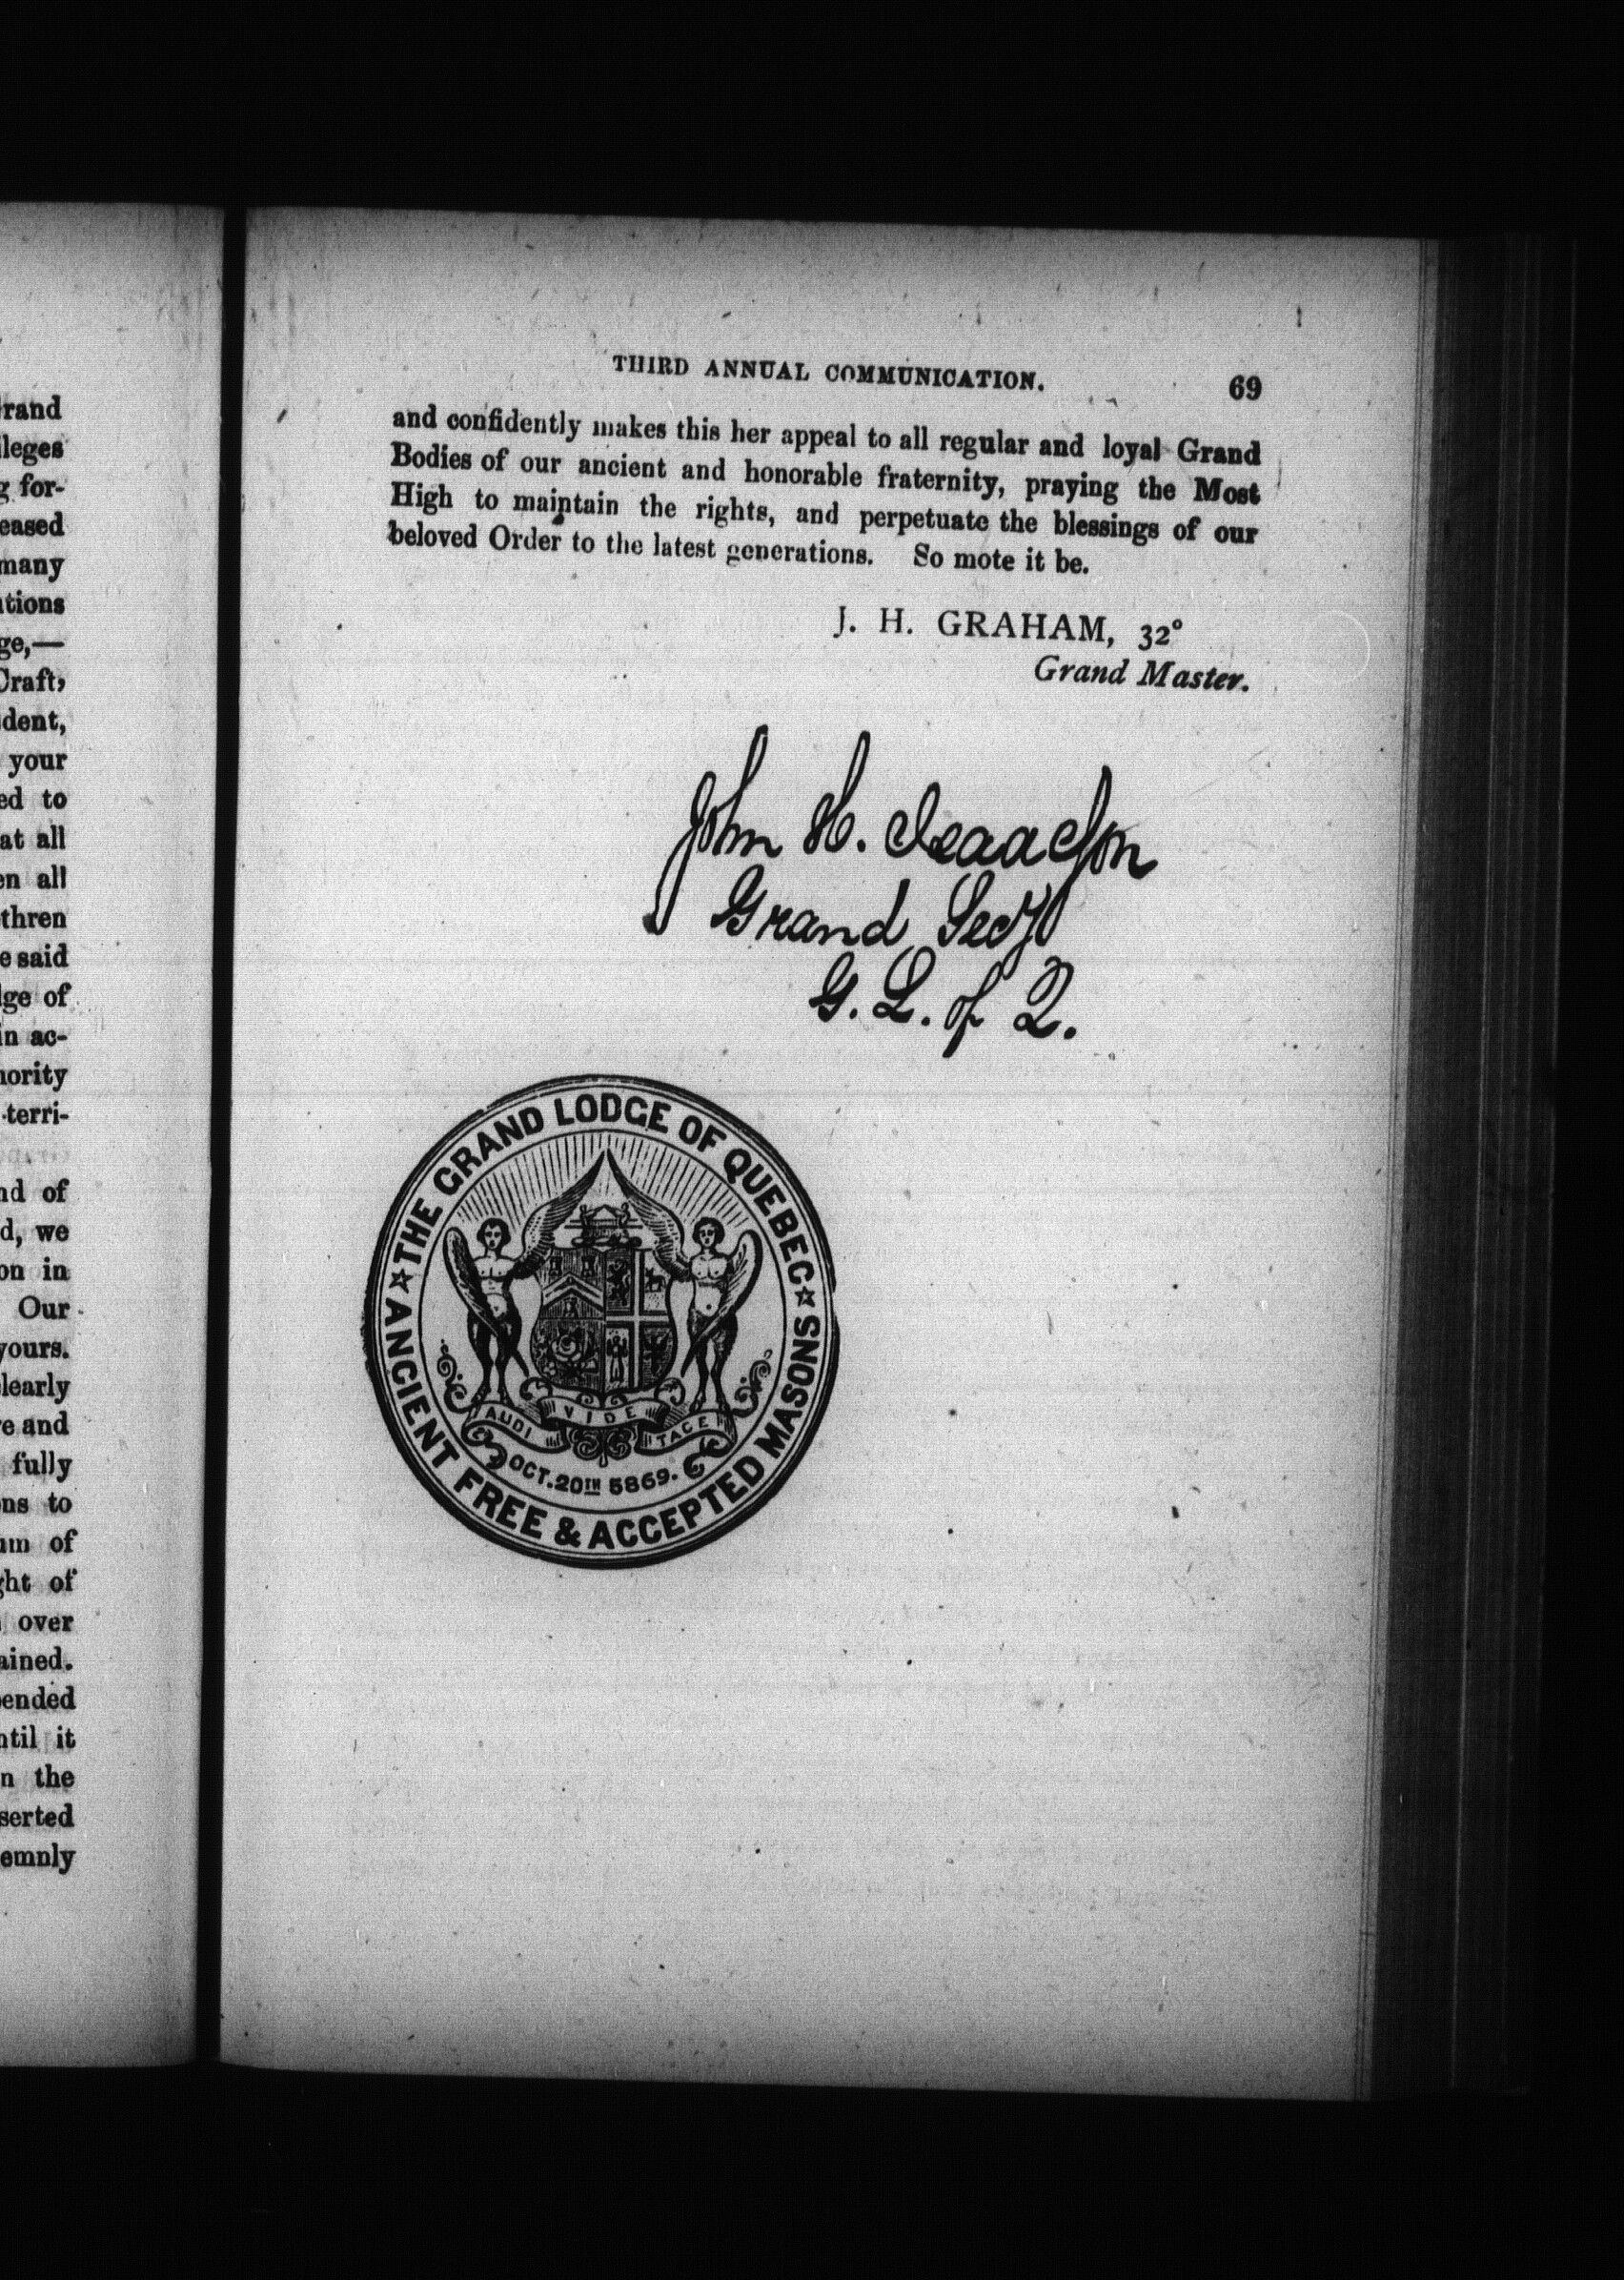 rand
ileges
g for-
eased
many
tions
ge,—
Craft,
dent,
your
ed to
at all
en all
thren
e said
lge of
in ac-
nority
terri-
nd of
d, we
on in
Our
yours.
learly
e and
fully
ns to
um of
ght of
over
ained.
pended
ntil it
n the
serted
emnly
THIRD ANNUAL COMMUNICATION. 69
and confidently makes this her appeal to all regular and loyal Grand
Bodies of our ancient and honorable fraternity, praying the Most
High to maintain the rights, and perpetuate the blessings of our
beloved Order to the latest generations. So mote it be.
J. H. GRAHAM, 32°
Grand Master.
John H. Isaacson
Grand Secy
G. L. of Q.
☆ THE GRAND LODGE OF QUEBEC ☆
ANCIENT FREE & ACCEPTED MASONS
AUDI VIDE TACE
OCT. 20TH 5869.